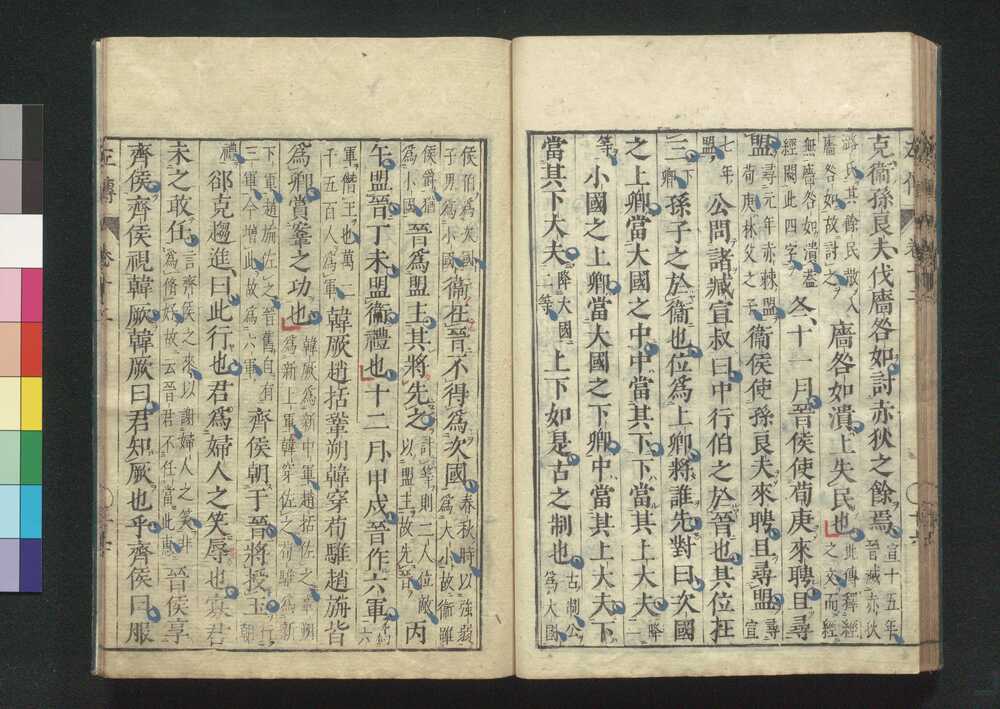 克衞孫良夫伐廧咎如討赤狄之餘焉宣十五年晉滅赤狄
潞氏其餘民散入廧咎如故討之廧咎如潰上失民也此傳釋經之文而經
無廧咎如潰蓋經闕此四字冬十一月晉侯使荀庚來聘且尋
盟尋元年赤棘盟荀庚林父之子衞侯使孫良夫來聘且尋盟尋宣
七年盟公問諸臧宣叔曰中行伯之於晉也其位在
三下卿孫子之於衞也位為上卿將誰先對曰次國
之上卿當大國之中中當其下下當其上大夫降一
等小國之上卿當大國之下卿中當其上大夫下
當其下大夫降大國二等上下如是古之制也古制公為大國
侯伯為次國子男為小國衞在晉不得為次國春秋時以強弱為大小故衞雖
侯爵猶為小國晉為盟主其將先之計等則二人位敵以盟主故先晉丙
午盟晉丁未盟衞禮也十二月甲戌晉作六軍為六
軍僭王也萬二千五百人為軍韓厥趙括鞏朔韓穿荀騅趙旃皆
為卿賞鞌之功也韓厥為新中軍趙括佐之鞏朔為新上軍韓穿佐之荀騅為新
下軍趙旃佐之晉舊自有三軍今增此故為六軍齊侯朝于晉將授玉行朝
禮郤克趨進曰此行也君為婦人之笑辱也寡君
未之敢任言齊侯之來以謝婦人之笑非為脩好故云晉君不任當此惠晉侯享
齊侯齊侯視韓厥韓厥曰君知厥也乎齊侯曰服
左傳